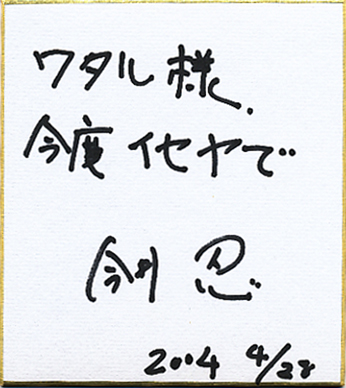 ワタル様.
今度 イセヤで
忍
2004 4/28